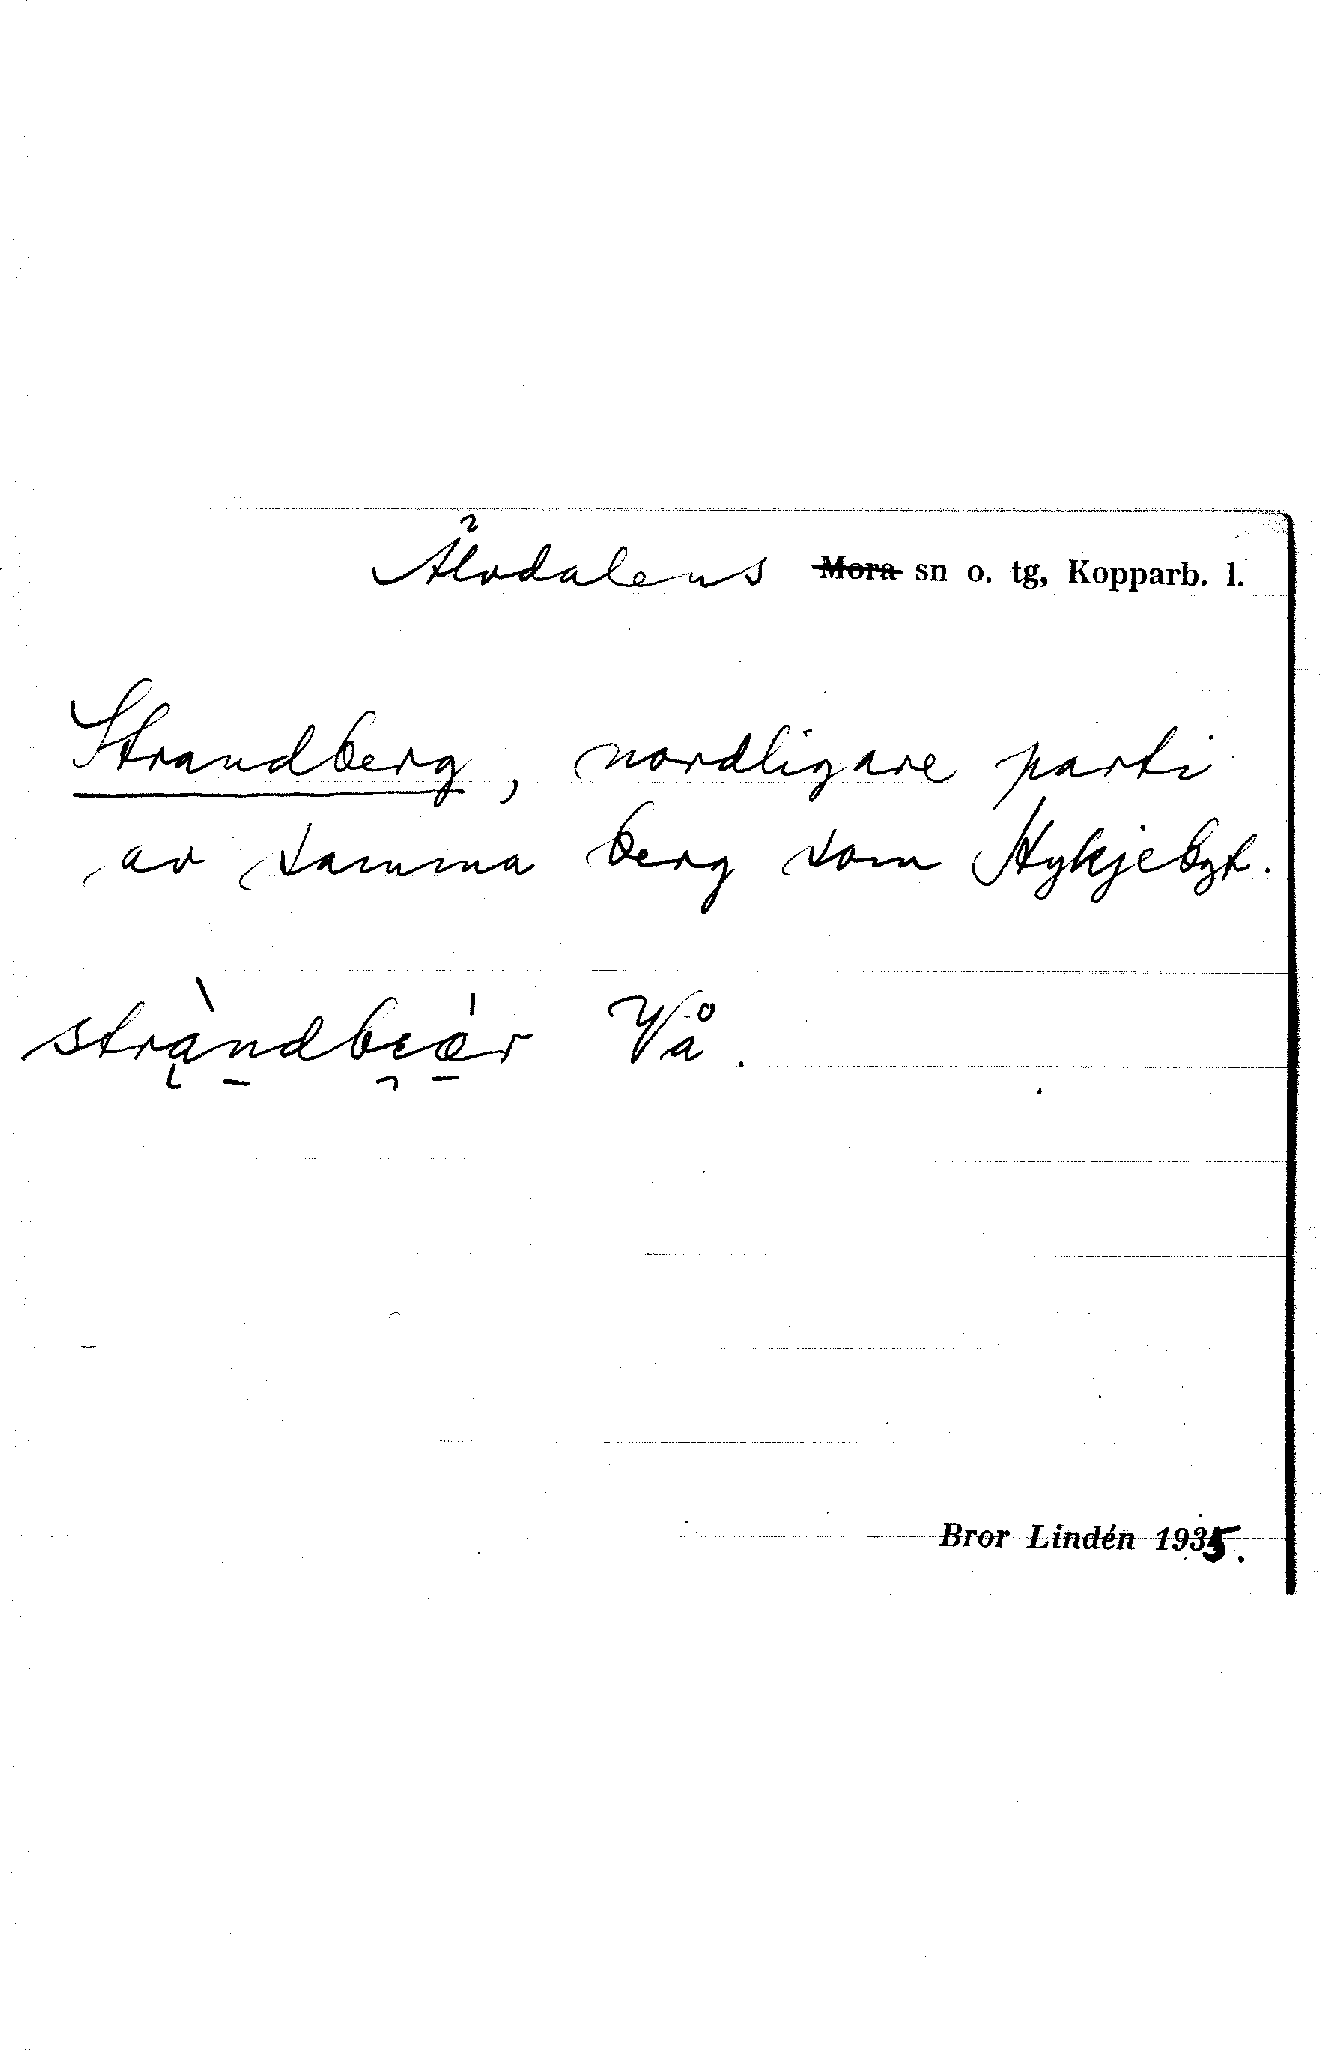 Älvdalens Mora sn o. tg, Kopparb. l.
Strandberg, nordligare parti
av samma berg som Hykjebgt.
Vå.
Bror Lindén 1935.